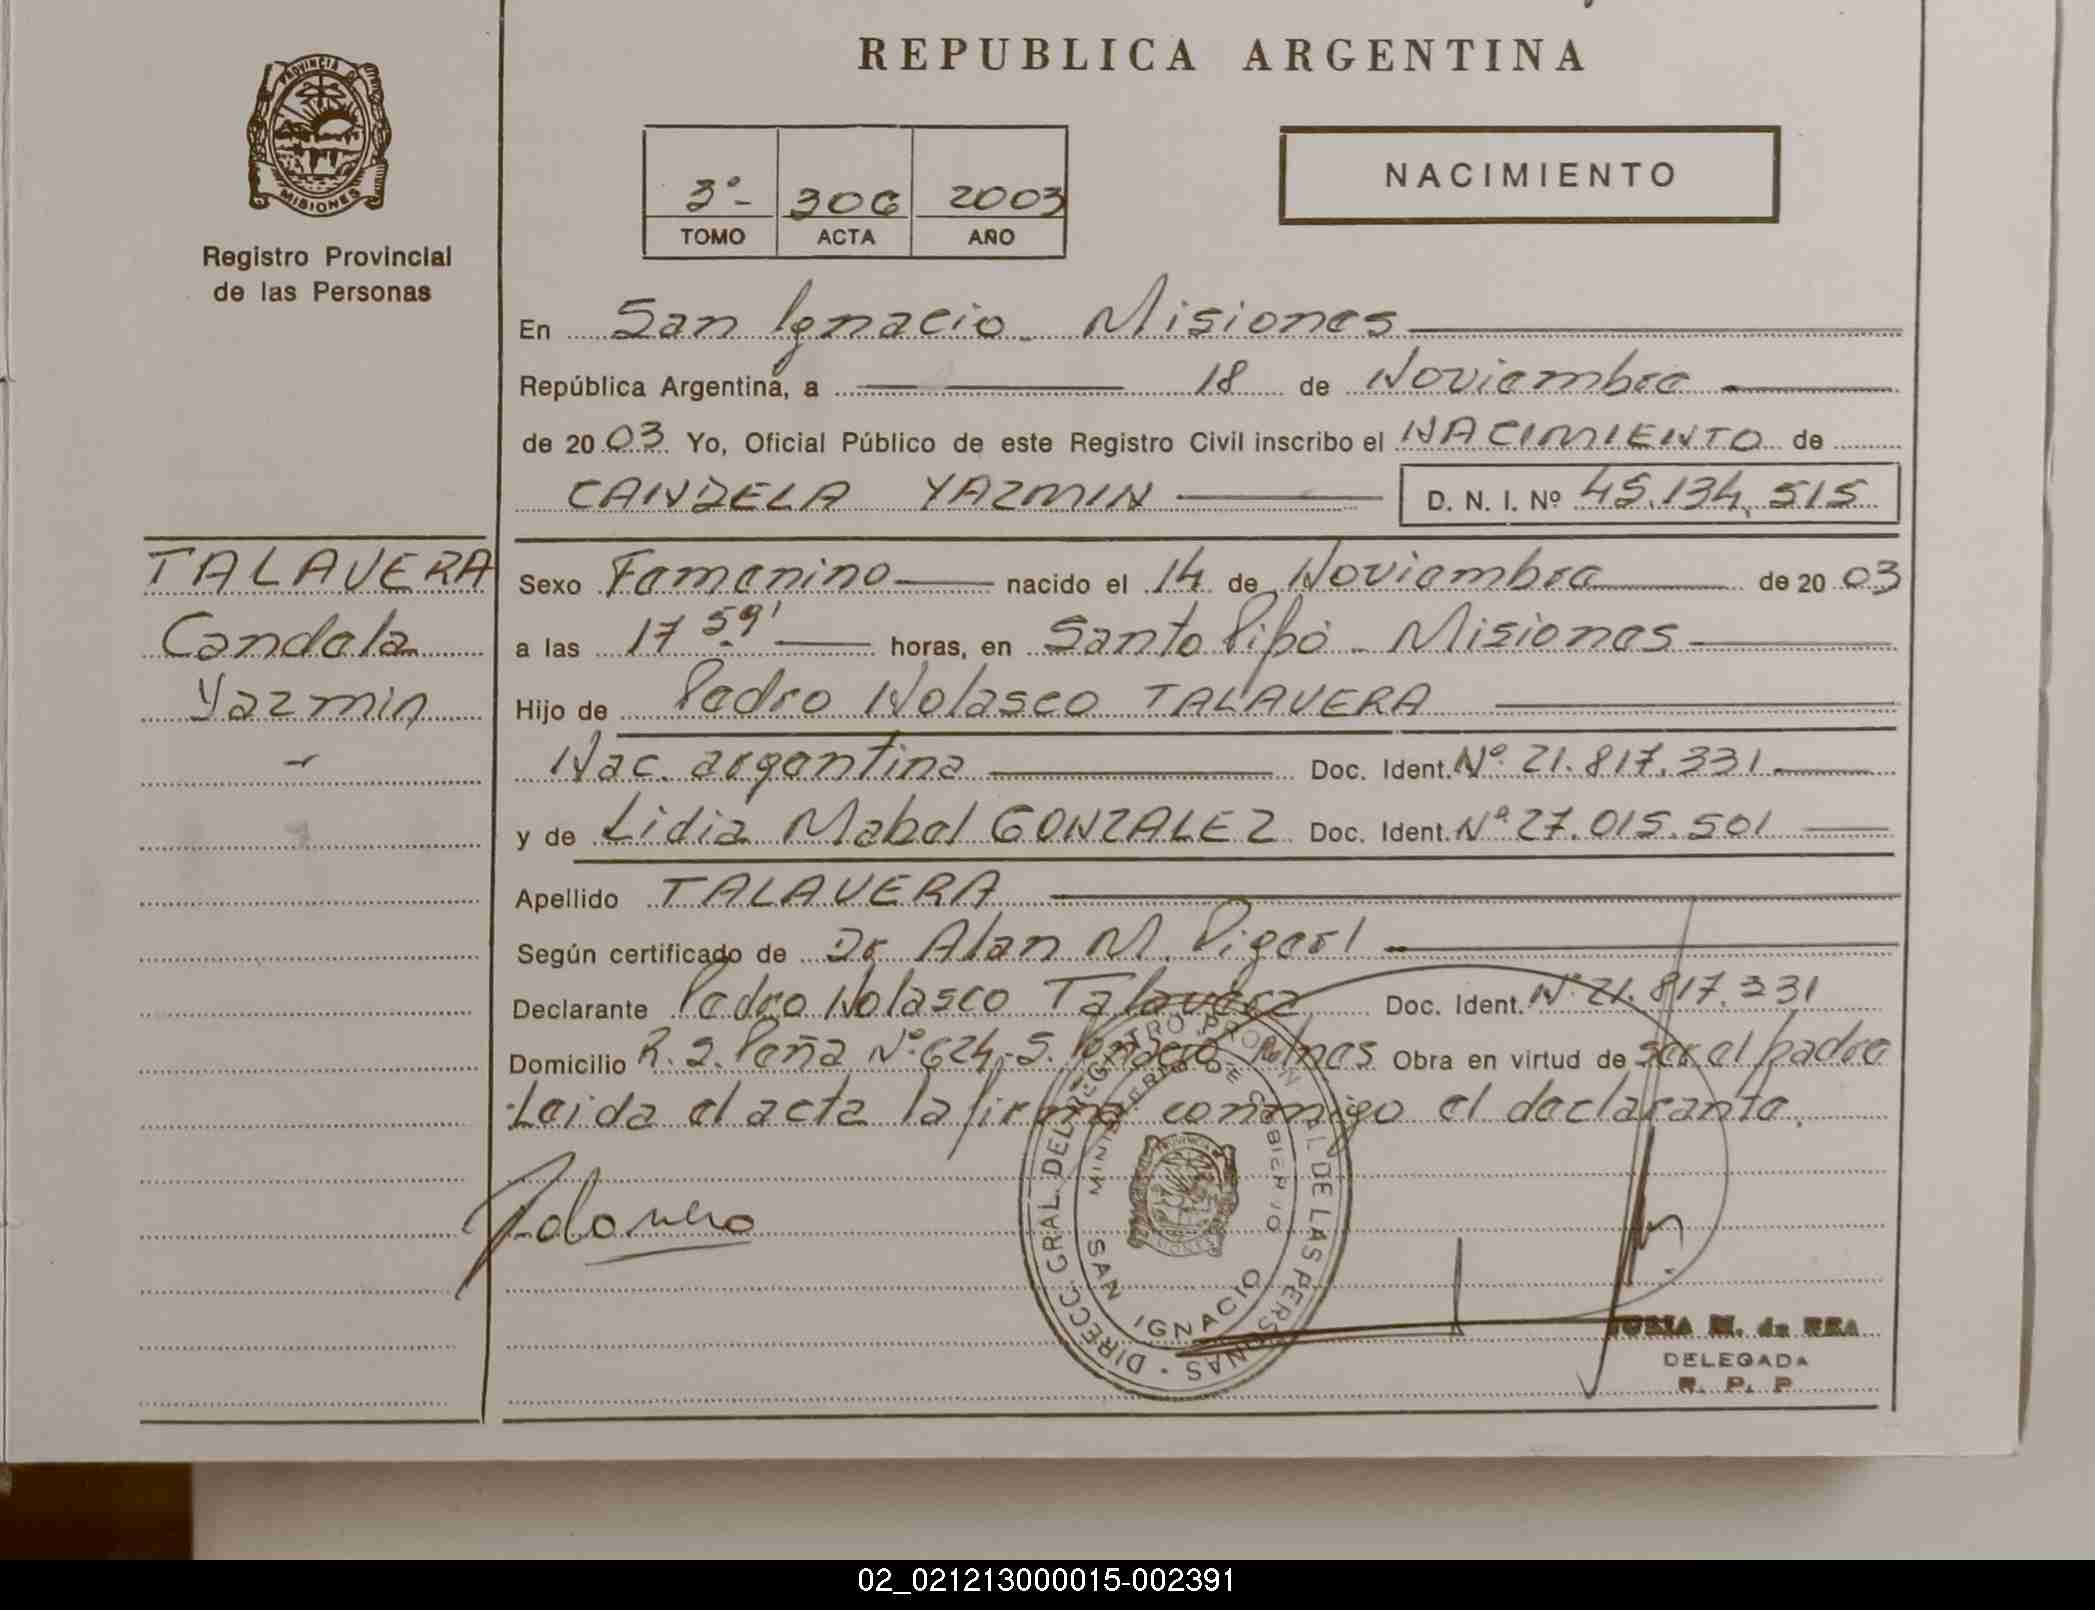 REPUBLICA ARGENTINA
PROVINCIA DE
MISIONES
Registro Provincial
de las Personas
3º- 306 2003
TOMO ACTA AÑO
NACIMIENTO
En San Ignacio - Misiones
República Argentina, a 18 de Noviembre
de 20 03 Yo, Oficial Público de este Registro Civil inscribo el NACIMIENTO de
CANDELA YAZMIN D. N. I. Nº 45.134.515
TALAVERA
Candela
Yazmin
Sexo Femenino nacido el 14 de Noviembre de 20 03
a las 17 59' horas, en Santo Pipó - Misiones
Hijo de Pedro Nolasco TALAVERA
Nac. argentina Doc. Ident. Nº 21.817.331
y de Lidia Mabel GONZALEZ Doc. Ident. Nº 27.015.501
Apellido TALAVERA
Según certificado de Dr Alan M.
Declarante Pedro Nolasco Talavera Doc. Ident. Nº 21.817.331
Domicilio R. S. Peña Nº 624. S. Ignacio Mnes Obra en virtud de ser el padre
Leida el acta la firma conmigo el declarante.
DIRECC. GRAL. DEL REGISTRO PROVINCIAL DE LAS PERSONAS
MINISTERIO DE GOBIERNO
SAN IGNACIO
M. de REA
DELEGADA
R. P. P
02_021213000015-002391